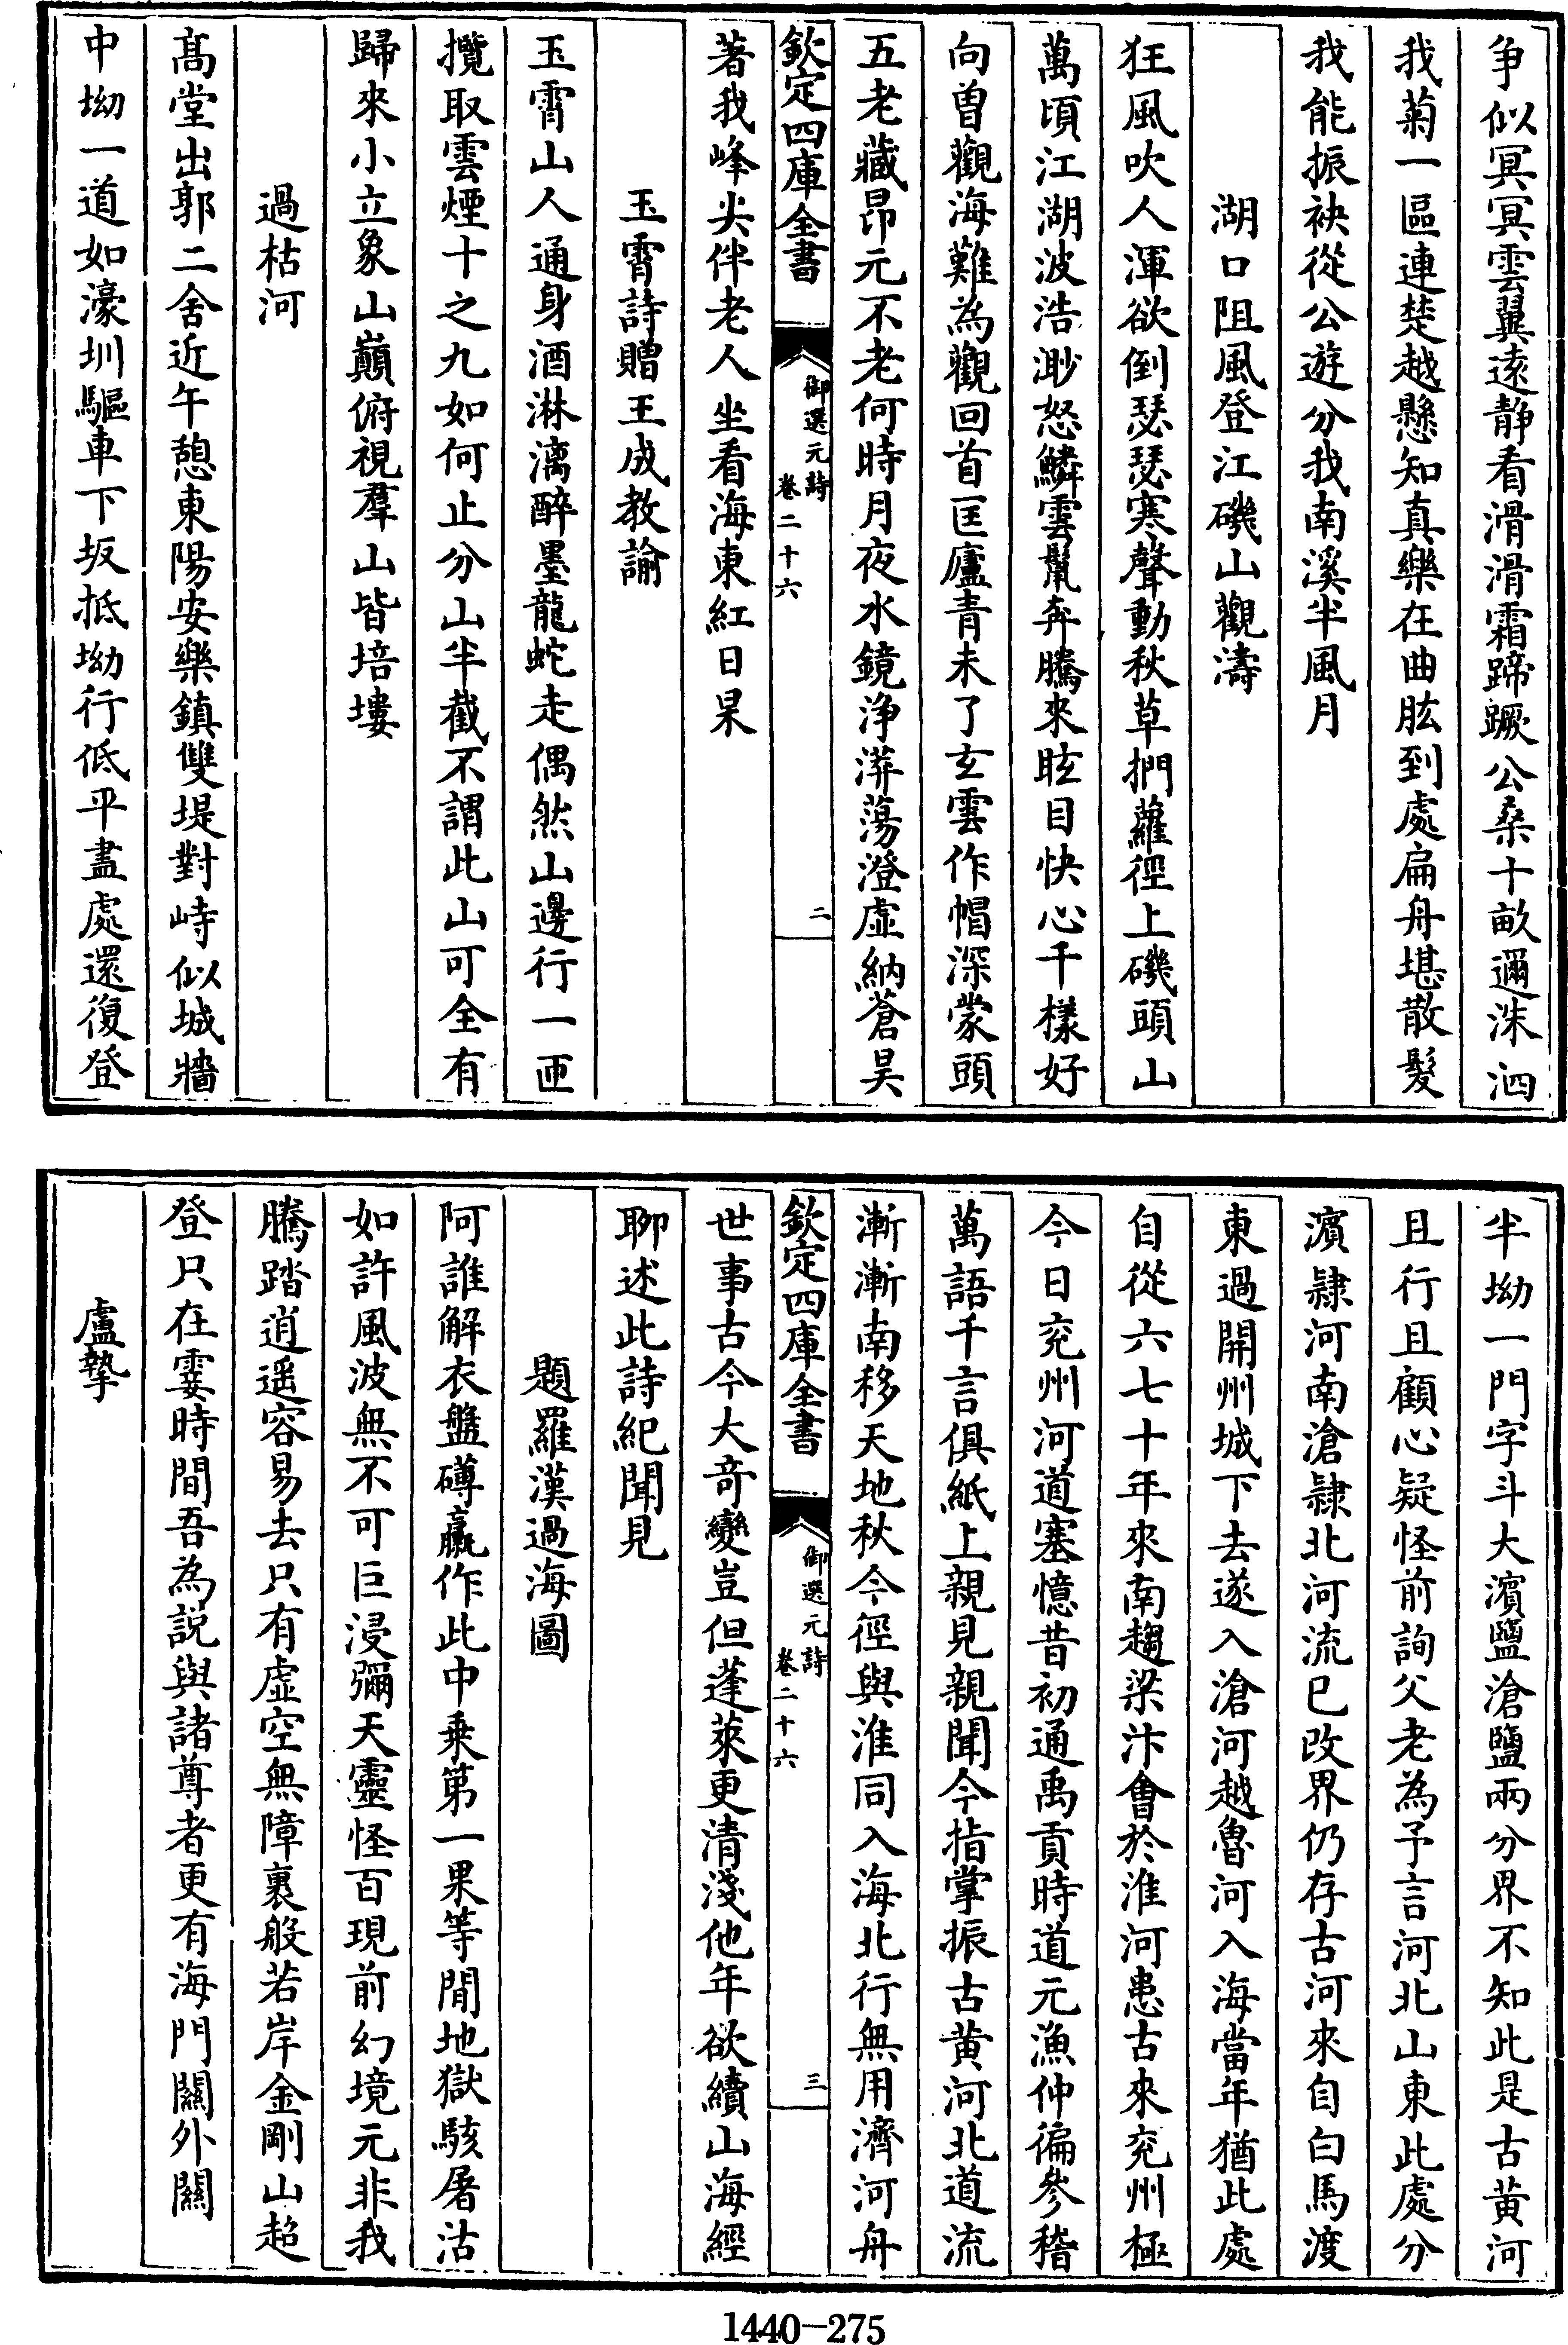 争似冥冥雲翼逺靜看滑滑霜蹄蹶公桑十畝邇洙泗
我菊一區連楚越懸知真樂在曲肱到處扁舟堪散髮
我能振袂從公遊分我南溪半風月
湖口阻風登江磯山觀濤
狂風吹人渾欲倒瑟瑟寒聲動秋草捫蘿徑上磯頭山
萬頃江湖波浩渺怒鱗雲鬛奔騰來眩目快心千樣好
向曽觀海難為觀回首匡廬青未了玄雲作帽深蒙頭
五老藏昂元不老何時月夜水鏡浄漭蕩澄虛納蒼昊
欽定四庫全書
御選元詩
卷二十六
二
著我峰尖伴老人坐看海東紅日杲
玉霄詩贈王成教諭
玉霄山人通身酒淋漓醉墨龍蛇走偶然山邊行一匝
攬取雲煙十之九如何止分山半截不謂此山可全有
歸來小立象山巔俯視羣山皆培塿
過枯河
髙堂出郭二舍近午憩東陽安樂鎮雙堤對峙似城牆
中坳一道如濠圳驅車下坂抵坳行低平盡處還復登
半坳一門字斗大濱鹽滄鹽兩分界不知此是古黄河
且行且顧心疑怪前詢父老為予言河北山東此處分
濱隷河南滄隷北河流已改界仍存古河來自白馬渡
東過開州城下去遂入滄河越魯河入海當年猶此處
自從六七十年來南趨梁汴會於淮河患古來兖州極
今日兖州河道塞憶昔初通禹貢時道元漁仲徧參稽
萬語千言俱紙上親見親聞今指掌振古黄河北道流
漸漸南移天地秋今徑與淮同入海北行無用濟河舟
欽定四庫全書
御選元詩
卷二十六
三
世事古今大竒變豈但蓬萊更清淺他年欲續山海經
聊述此詩紀聞見
題羅漢過海圖
阿誰解衣盤礡臝作此中乗第一果等閒地獄駭屠沽
如許風波無不可巨浸彌天靈怪百現前幻境元非我
騰踏逍遥容易去只有虛空無障裏般若岸金剛山超
登只在霎時間吾為説與諸尊者更有海門闗外闗
盧摯
1440—275